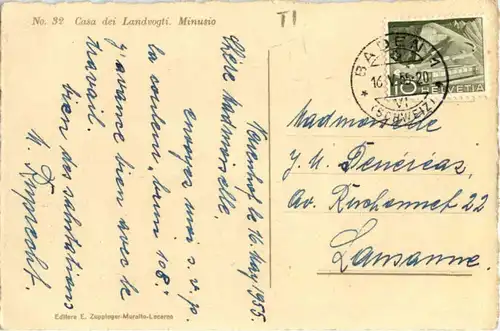 No. 32 Casa dei Landvogti. Minusio
TI
Neuenhof le 16 May 1955
Chère Mademoiselle.
envoyez moi s.v.p.
la couleur "brun 108".
J'avance bien avec le
travail.
bien des salutations
M. Ruprecht.
Editore E. Zoppinger-Muralto-Locarno
BADEN 1
16.V.55.-20
VI
(SCHWEIZ)
10 HELVETIA
Mademoiselle
J. M. Denéréaz
Av. Ruchonnet 22
Lausanne.